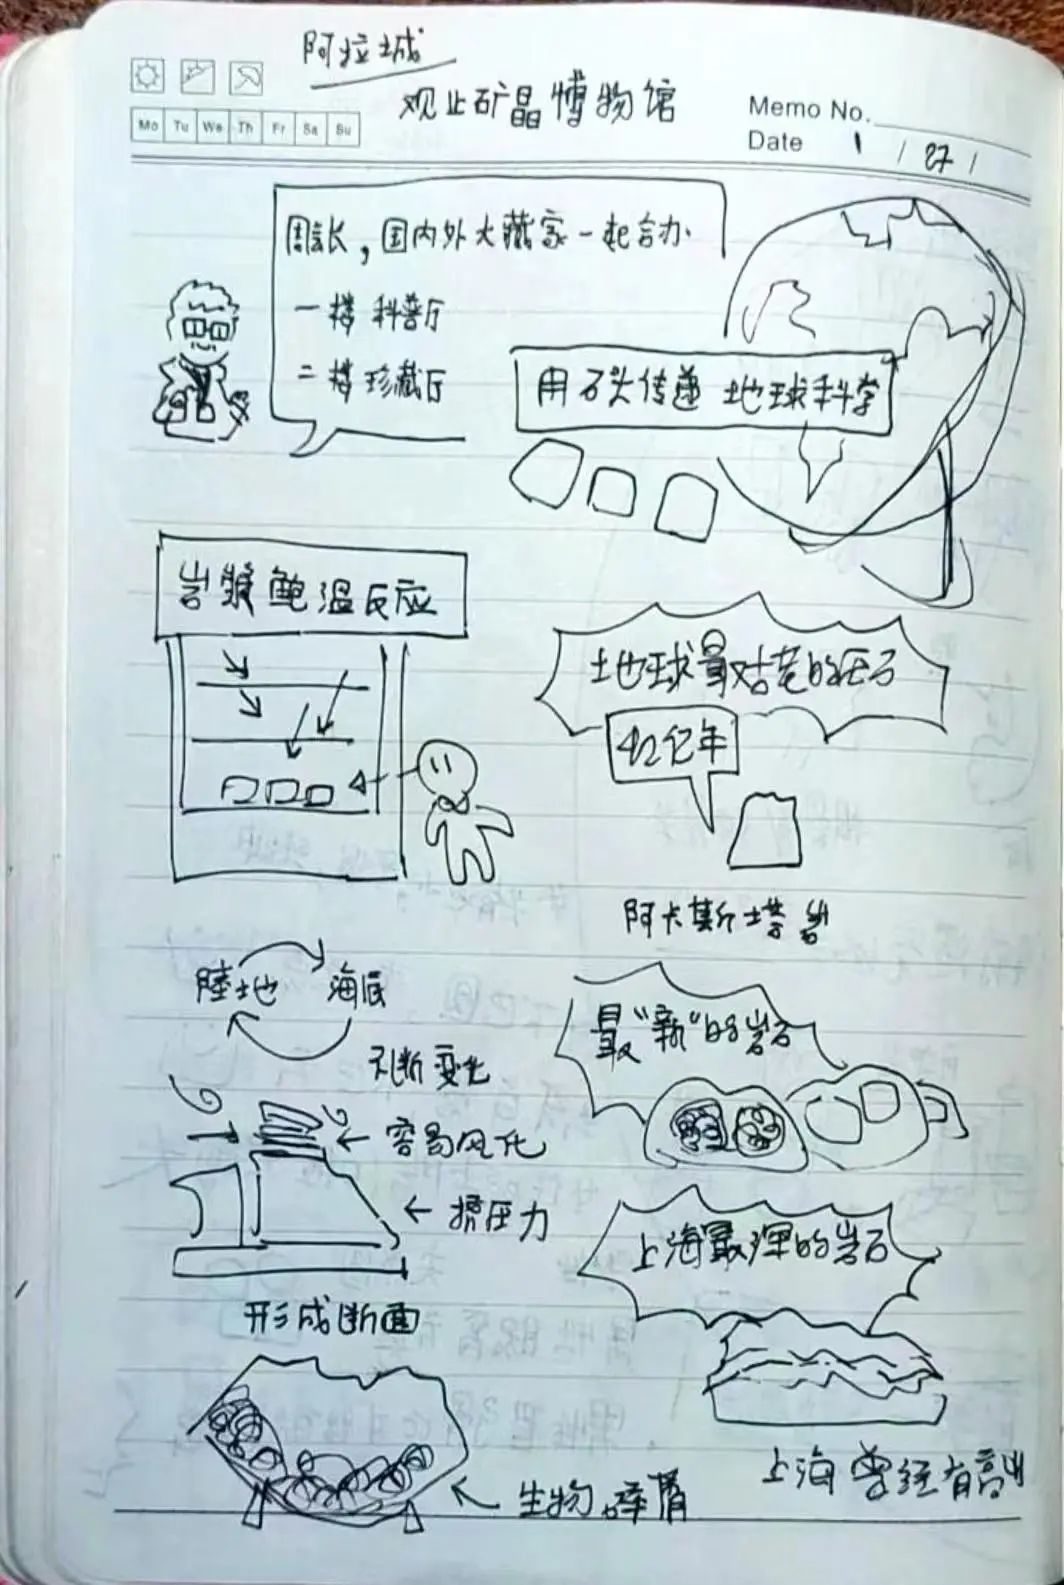 阿拉城
观止矿晶博物馆
Memo No.
Date 1 / 27 /
Mo Tu We Th Fr Sa Su
周会长，国内外大藏家一起合办
一楼 科普厅
二楼 珍藏厅
用石头传递 地球科学
岩浆 温反应
地球最古老的岩石
42亿年
阿卡斯塔岩
陸地 海底
不断变化
最“新”的岩石
容易风化
挤压力
上海最深的岩石
形成断面
生物碎屑
上海曾经有高山